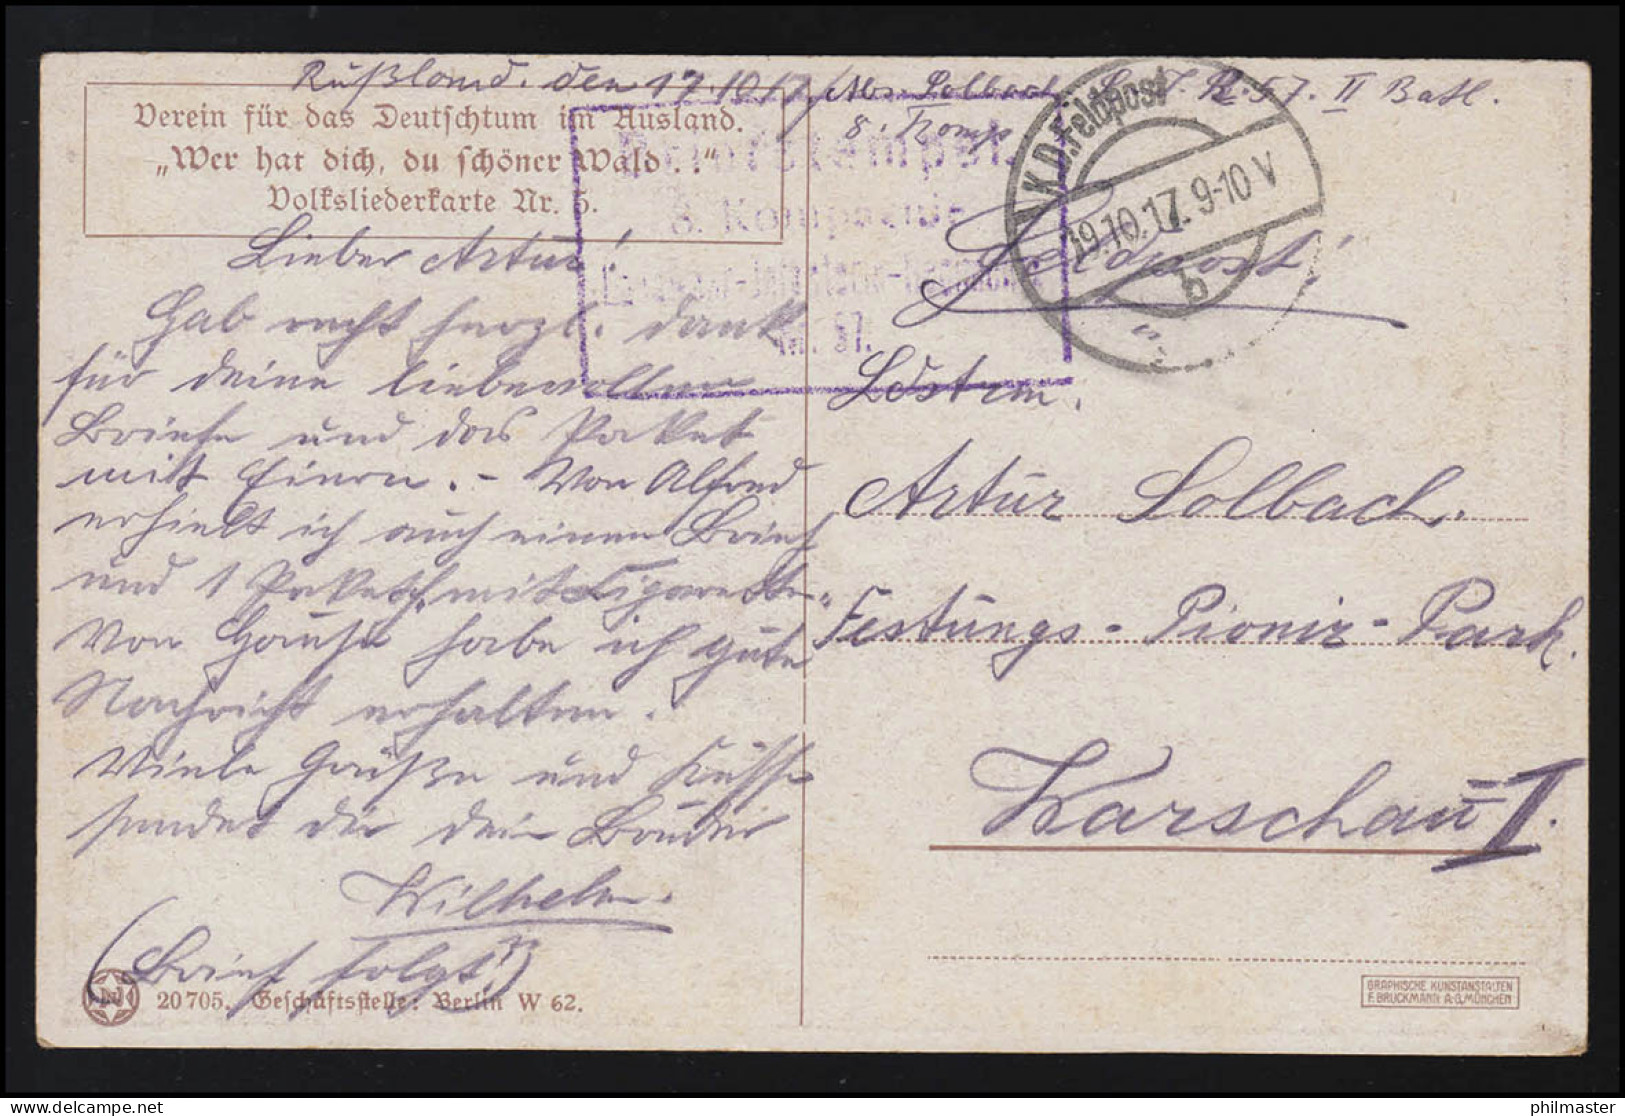 Rußland. den 17.10.17. Abs. Solbach L. I. R. 57. II Batl.
8. Komp.
Verein für das Deutschtum im Ausland.
„Wer hat dich, du schöner Wald . ."
Volksliederkarte Nr. 5.
8. Kompagnie
K.D. Feldpost
19.10.17. 9-10 V
b
Feldpost!
Lieber Artur!
Hab recht herzl. Dank
für deine liebevollen
Briefe und das Paket
mit Birnen. – Von Alfred
erhielt ich auch einen Brief
und 1 Paketch. mit Zigaretten.
Von Hause habe ich gute
Nachricht erhalten.
Viele Grüße und Küsse
sendet dir dein Bruder
Wilhelm.
(Brief folgt)
Osten.
Artur Solbach.
Festungs-Pionir-Park.
Warschau I.
20705. Geschäftsstelle: Berlin W 62.
GRAPHISCHE KUNSTANSTALTEN
F. BRUCKMANN A.-G. MÜNCHEN
philmaster